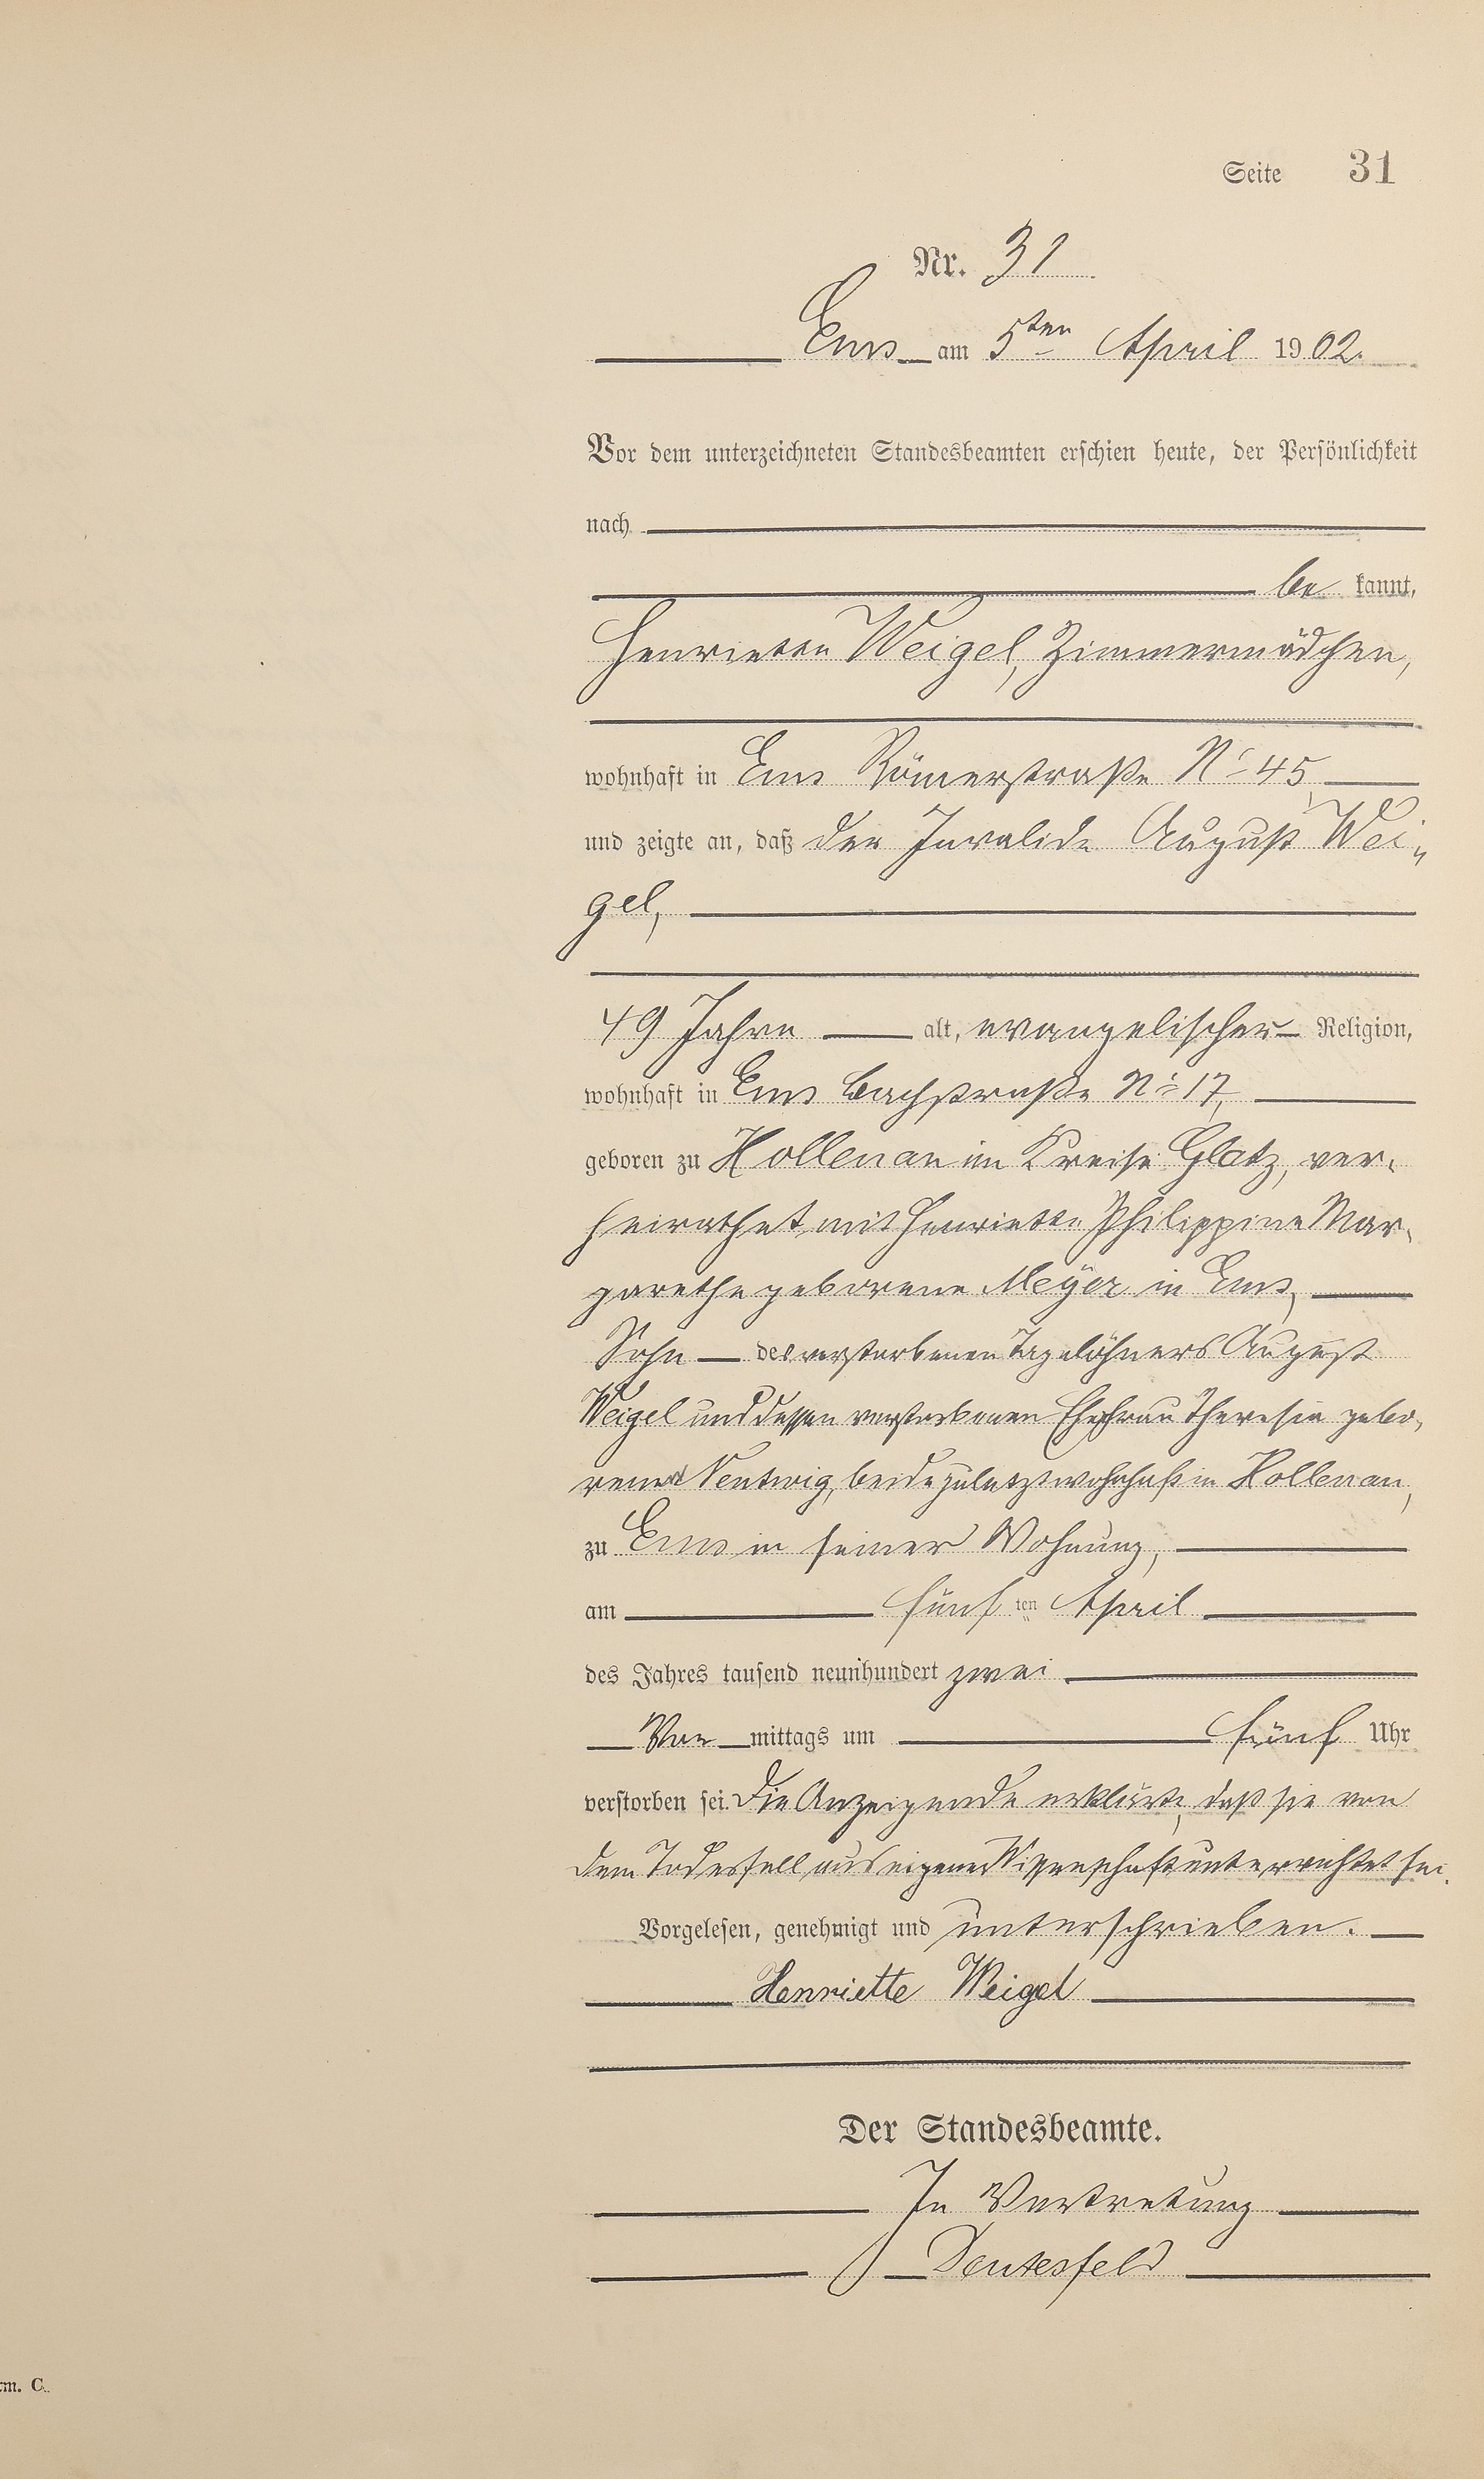 Seite 31
Nr. 31
Ems am 5ten April 1902.
Vor dem unterzeichneten Standesbeamten erschien heute, der Persönlichkeit
nach
be kannt,
Henriette Weigel, Zimmermädchen,
wohnhaft in Ems Römerstraße No 45,
und zeigte an, daß der Invalide August Wei-
gel,
49 Jahre alt, evangelischer Religion,
wohnhaft in Ems Bachstraße No 17,
geboren zu Hollenau im Kreise Glatz, ver-
heirathet mit Henriette Philippine Mar-
garethe geborene Meyer in Ems,
Sohn des verstorbenen Tagelöhners August
Weigel und dessen verstorbenen Ehefrau Theresia gebo-
rene Nentwig, beide zuletzt wohnhaft in Hollenau,
zu Ems in seiner Wohnung,
am fünf ten April
des Jahres tausend neunhundert zwei
Vor mittags um fünf Uhr
verstorben sei. Die Anzeigende erklärte, daß sie von
dem Todesfall aus eigener Wissenschaft unterrichtet sei.
Vorgelesen, genehmigt und unterschrieben.
Henriette Weigel
Der Standesbeamte.
In Vertretung
Deutesfeld
rm. C.